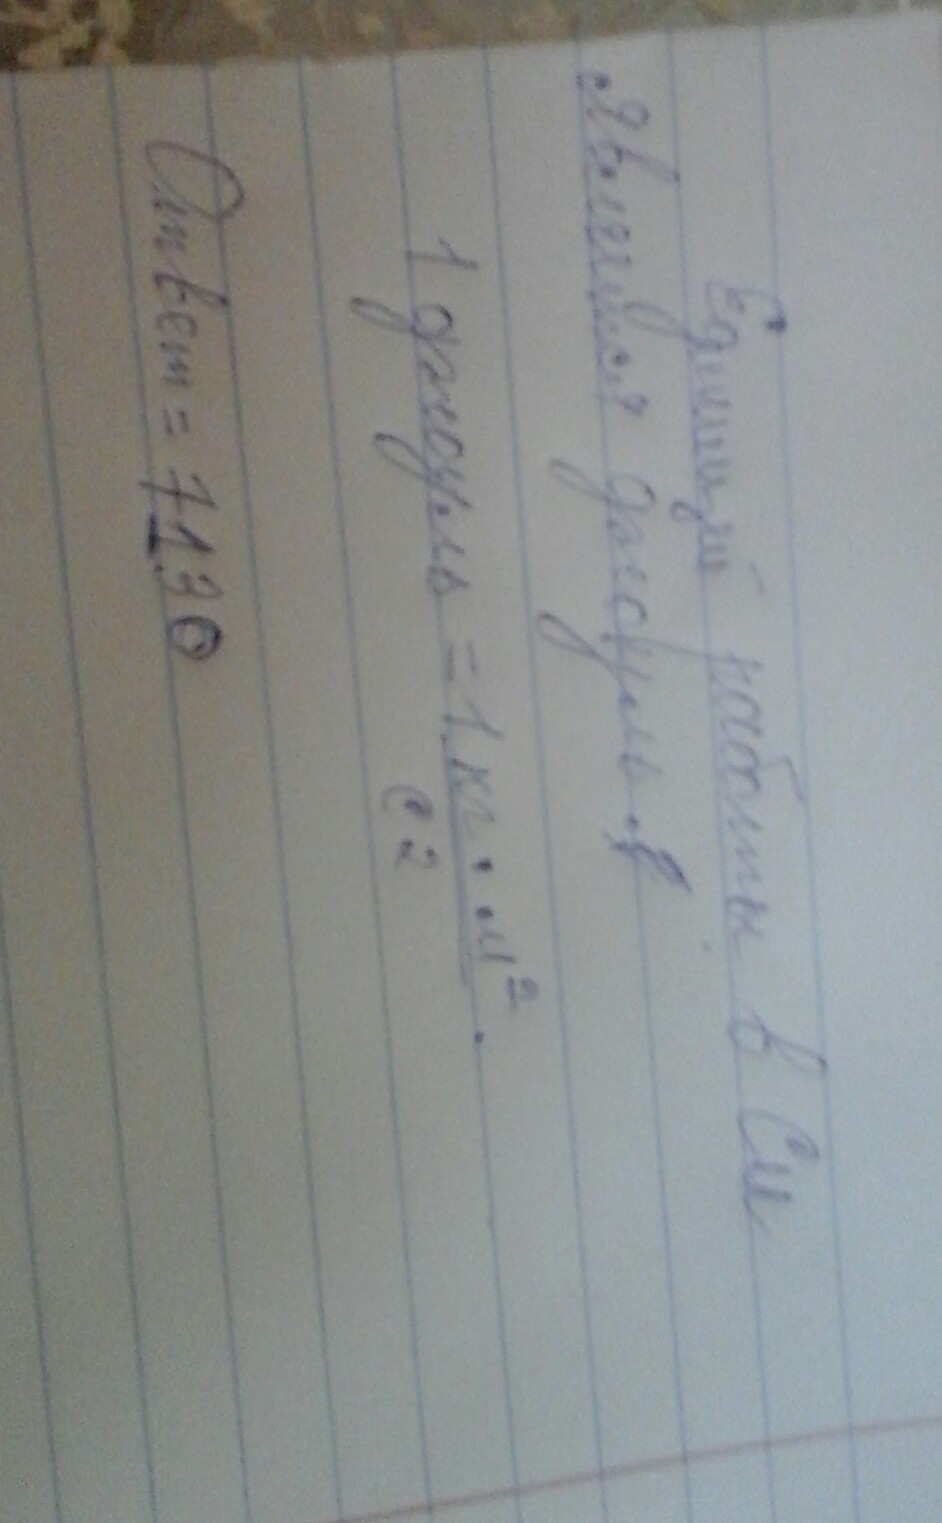 Единицей работы в Си
является джоуль.
1 джоуль = 1 кг · м².
с 2
Ответ = 7130